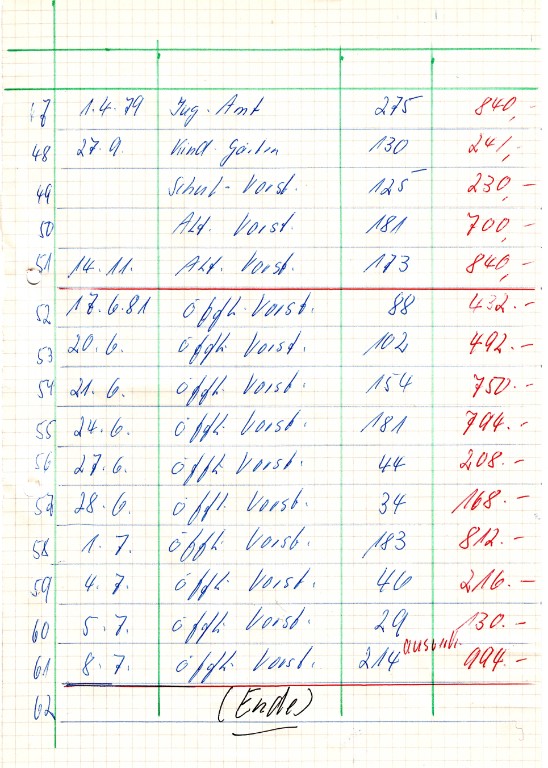 47 1.4.79 Jug.-Amt 275 840,-
48 27.9. Kind.-Gärten 130 241,-
49 Schul-Vorst. 125 230,-
50 Alt. Vorst. 181 700,-
51 14.11. Alt. Vorst. 173 840,-
52 17.6.81 Öfftl. Vorst. 88 432.-
53 20.6. Öfftl. Vorst. 102 492.-
54 21.6. Öfftl. Vorst. 154 750.-
55 24.6. Öfftl. Vorst. 181 794.-
56 27.6. Öfftl. Vorst. 44 208.-
57 28.6. Öfftl. Vorst. 34 168.-
58 1.7. Öfftl. Vorst. 183 812.-
59 4.7. Öfftl. Vorst. 46 216.-
60 5.7. Öfftl. Vorst. 29 130.-
61 8.7. Öfftl. Vorst. 214 ausverk. 994.-
62 (Ende)